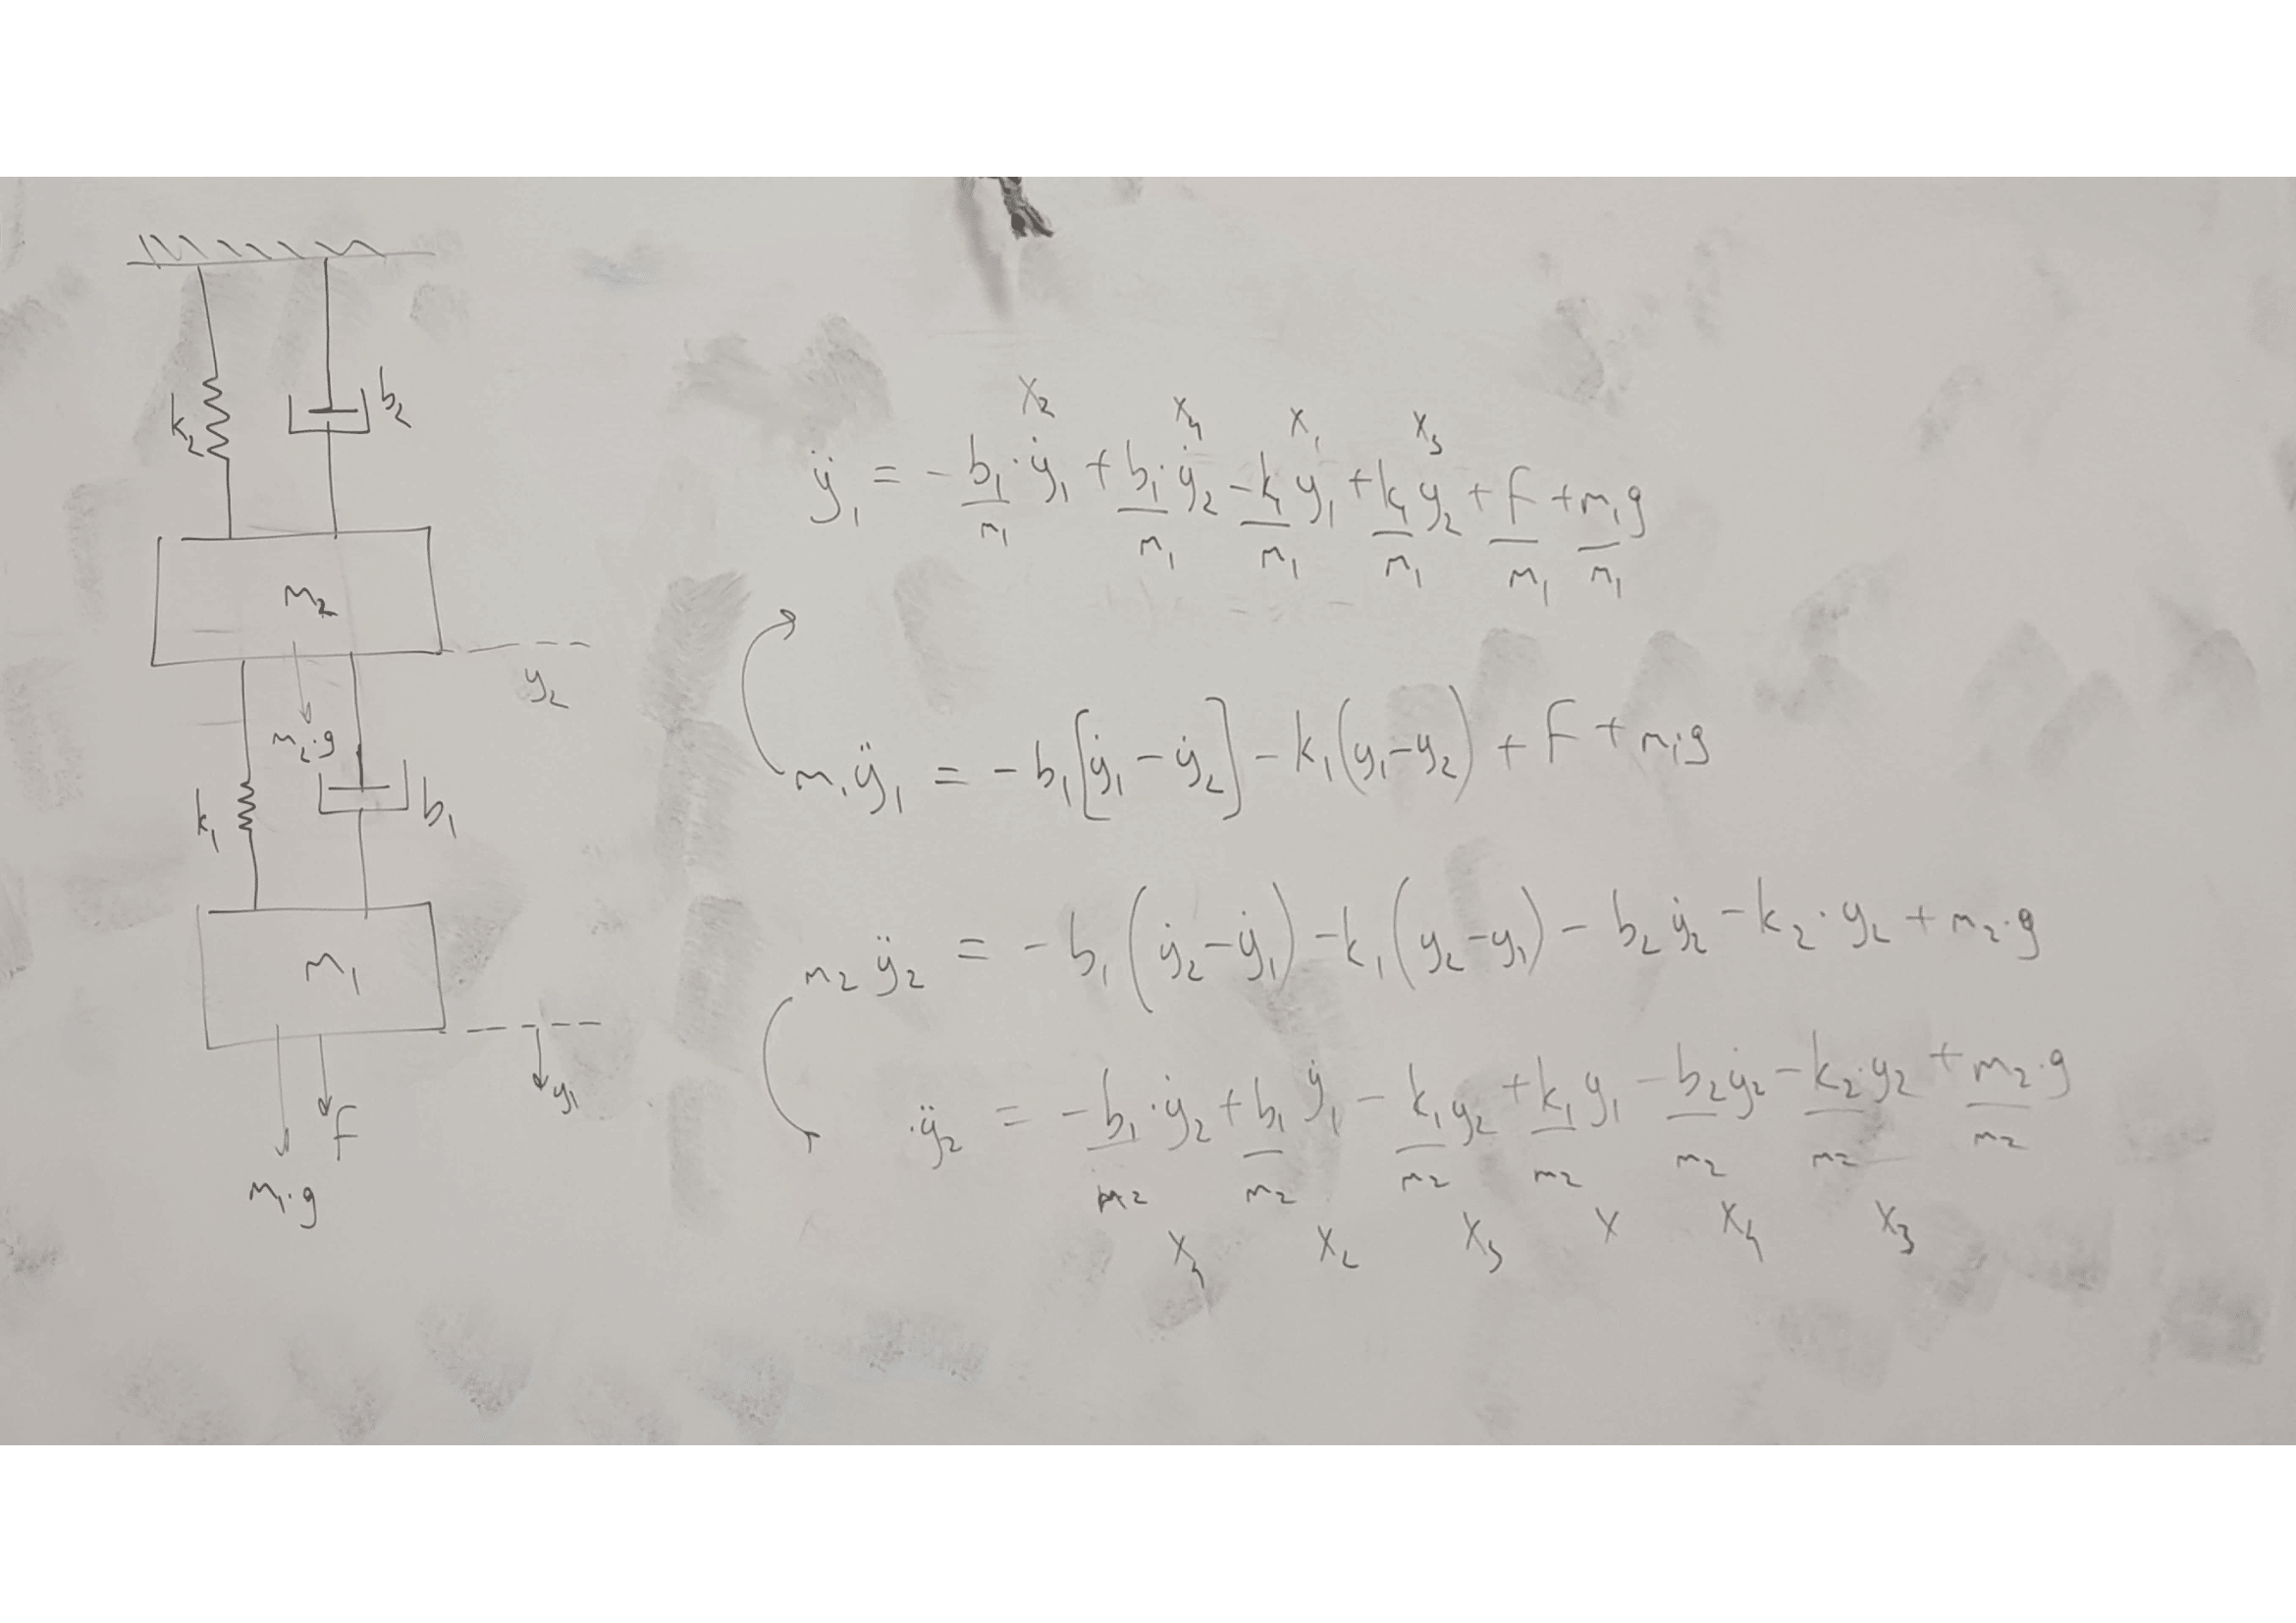 k₂
b₂
m₂
y₂
m₂·g
k₁
b₁
m₁
y₁
F
m₁·g
x₂ x₄ x₁ x₃
ÿ₁ = - b₁/m₁ · ẏ₁ + b₁/m₁ · ẏ₂ - k₁/m₁ y₁ + k₁/m₁ y₂ + F/m₁ + m₁/m₁ g
m₁ÿ₁ = - b₁[ẏ₁ - ẏ₂] - k₁(y₁ - y₂) + F + m₁g
m₂ÿ₂ = - b₁(ẏ₂ - ẏ₁) - k₁(y₂ - y₁) - b₂ẏ₂ - k₂·y₂ + m₂·g
·ÿ₂ = - b₁/m₂ · ẏ₂ + b₁/m₂ ẏ₁ - k₁/m₂ y₂ + k₁/m₂ y₁ - b₂/m₂ ẏ₂ - k₂/m₂ · y₂ + m₂/m₂ · g
x₄ x₂ x₃ x x₄ x₃